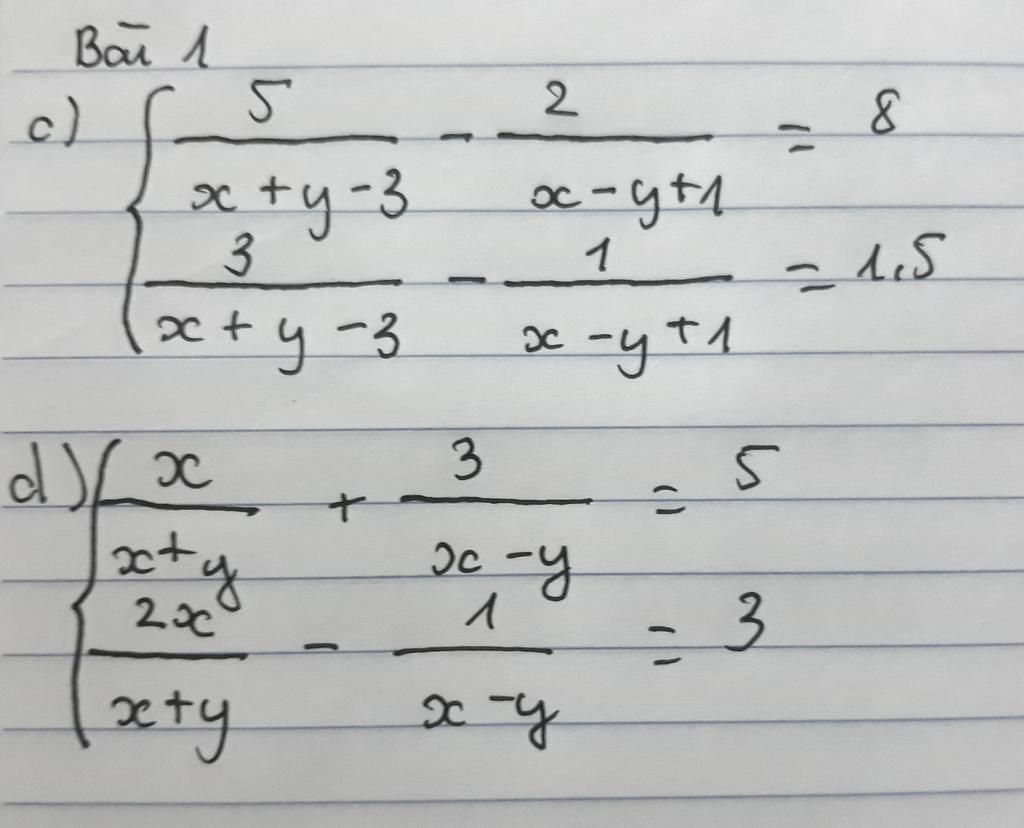 Bài 1
c) { 5/(x+y-3) - 2/(x-y+1) = 8
3/(x+y-3) - 1/(x-y+1) = 1,5
d) { x/(x+y) + 3/(x-y) = 5
2x/(x+y) - 1/(x-y) = 3